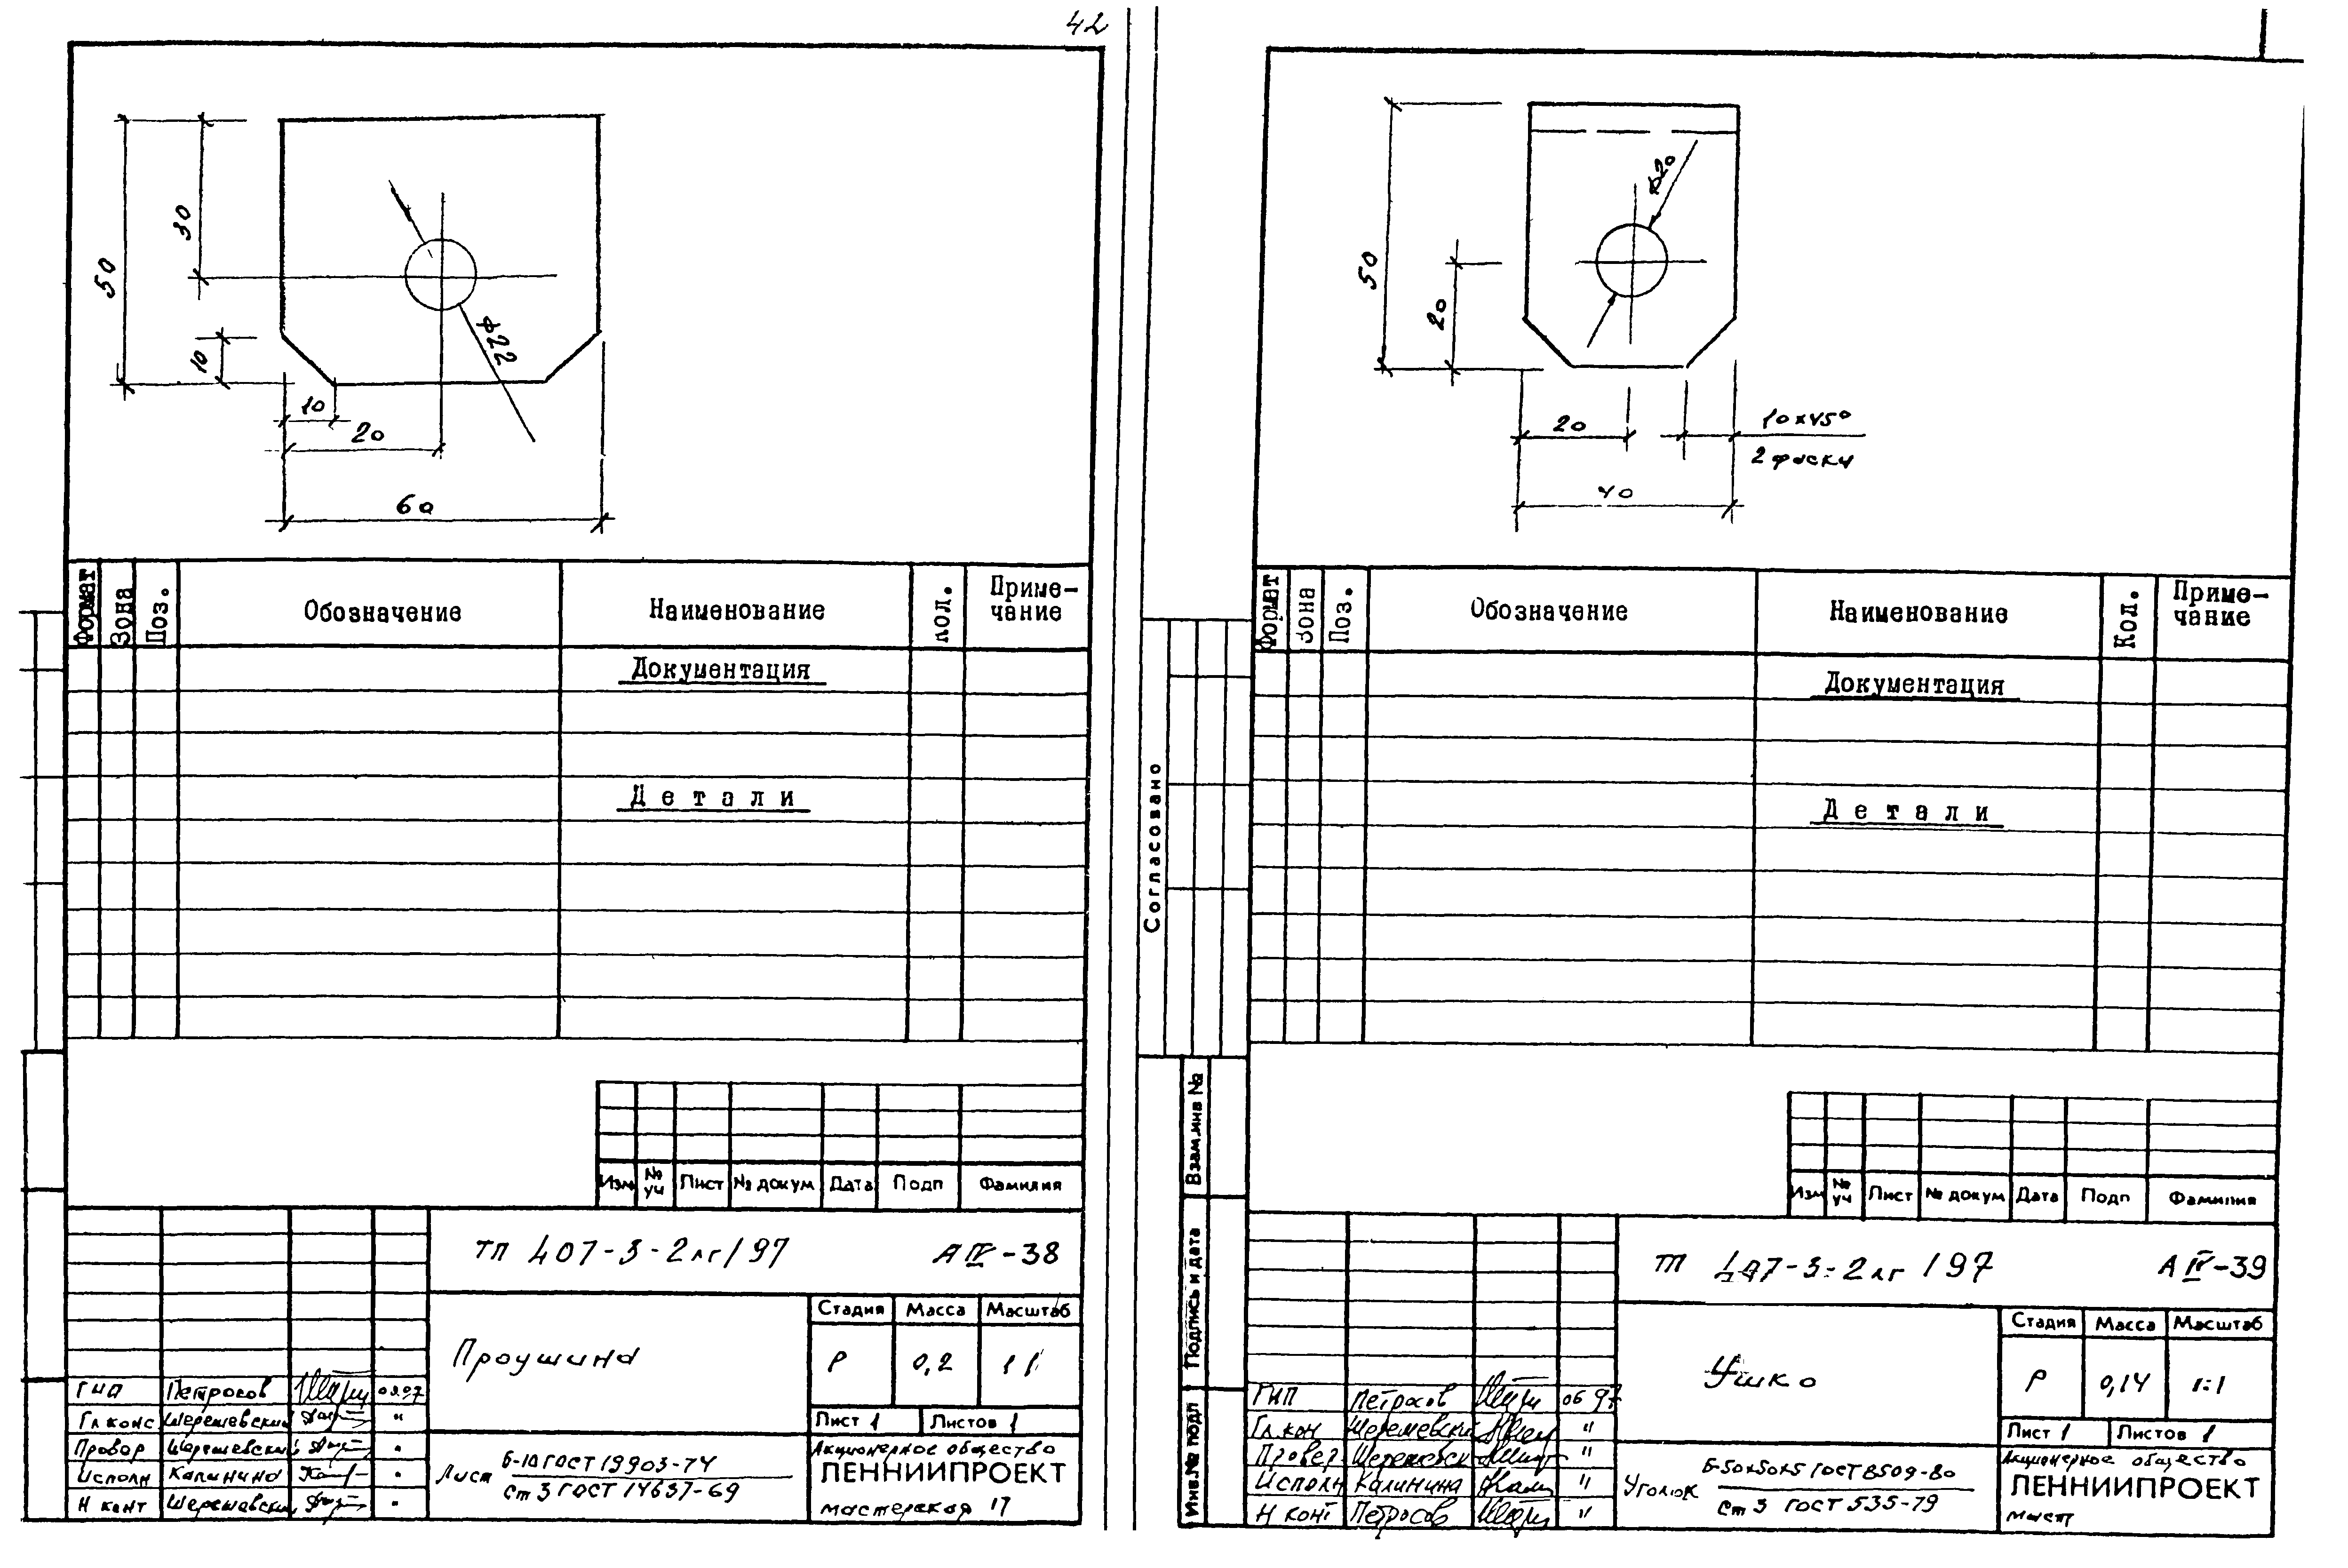 42
50
30
10
10
20
60
ф22
Формат
Зона
Поз.
Обозначение
Наименование
Кол.
Приме-
чание
Документация
Детали
Изм
№
уч
Лист
№ докум
Дата
Подп
Фамилия
ТП 407-3-2лг/97
А IV-38
Проушина
Стадия
Масса
Масштаб
Р
0,2
1 1
Лист 1
Листов 1
ГИП
Петросов
Гл конс
Шерешевский
"
Провер
Шерешевский
"
Исполн
Калинина
"
Н конт
Шерешевский
"
Лист
Б-10 ГОСТ 19903-74
Ст 3 ГОСТ 14637-69
Акционерное общество
ЛЕННИИПРОЕКТ
мастерская 17
50
20
ф20
20
40
10×45°
2 фаски
Формат
Зона
Поз.
Обозначение
Наименование
Кол.
Приме-
чание
Документация
Детали
Согласовано
Взам.инв №
Подпись и дата
Инв.№ подл
Изм
№
уч
Лист
№ докум
Дата
Подп
Фамилия
ТП 407-3-2лг/97
А IV-39
Ушко
Стадия
Масса
Масштаб
Р
0,14
1:1
Лист 1
Листов 1
ГИП
Петросов
06 97
Гл кон
Шерешевский
"
Провер
Шерешевск
"
Исполн
Калинина
"
Н конт
Петросов
"
Уголок
Б-50×50×5 ГОСТ 8509-80
Ст 3 ГОСТ 535-79
Акционерное общество
ЛЕННИИПРОЕКТ
маст